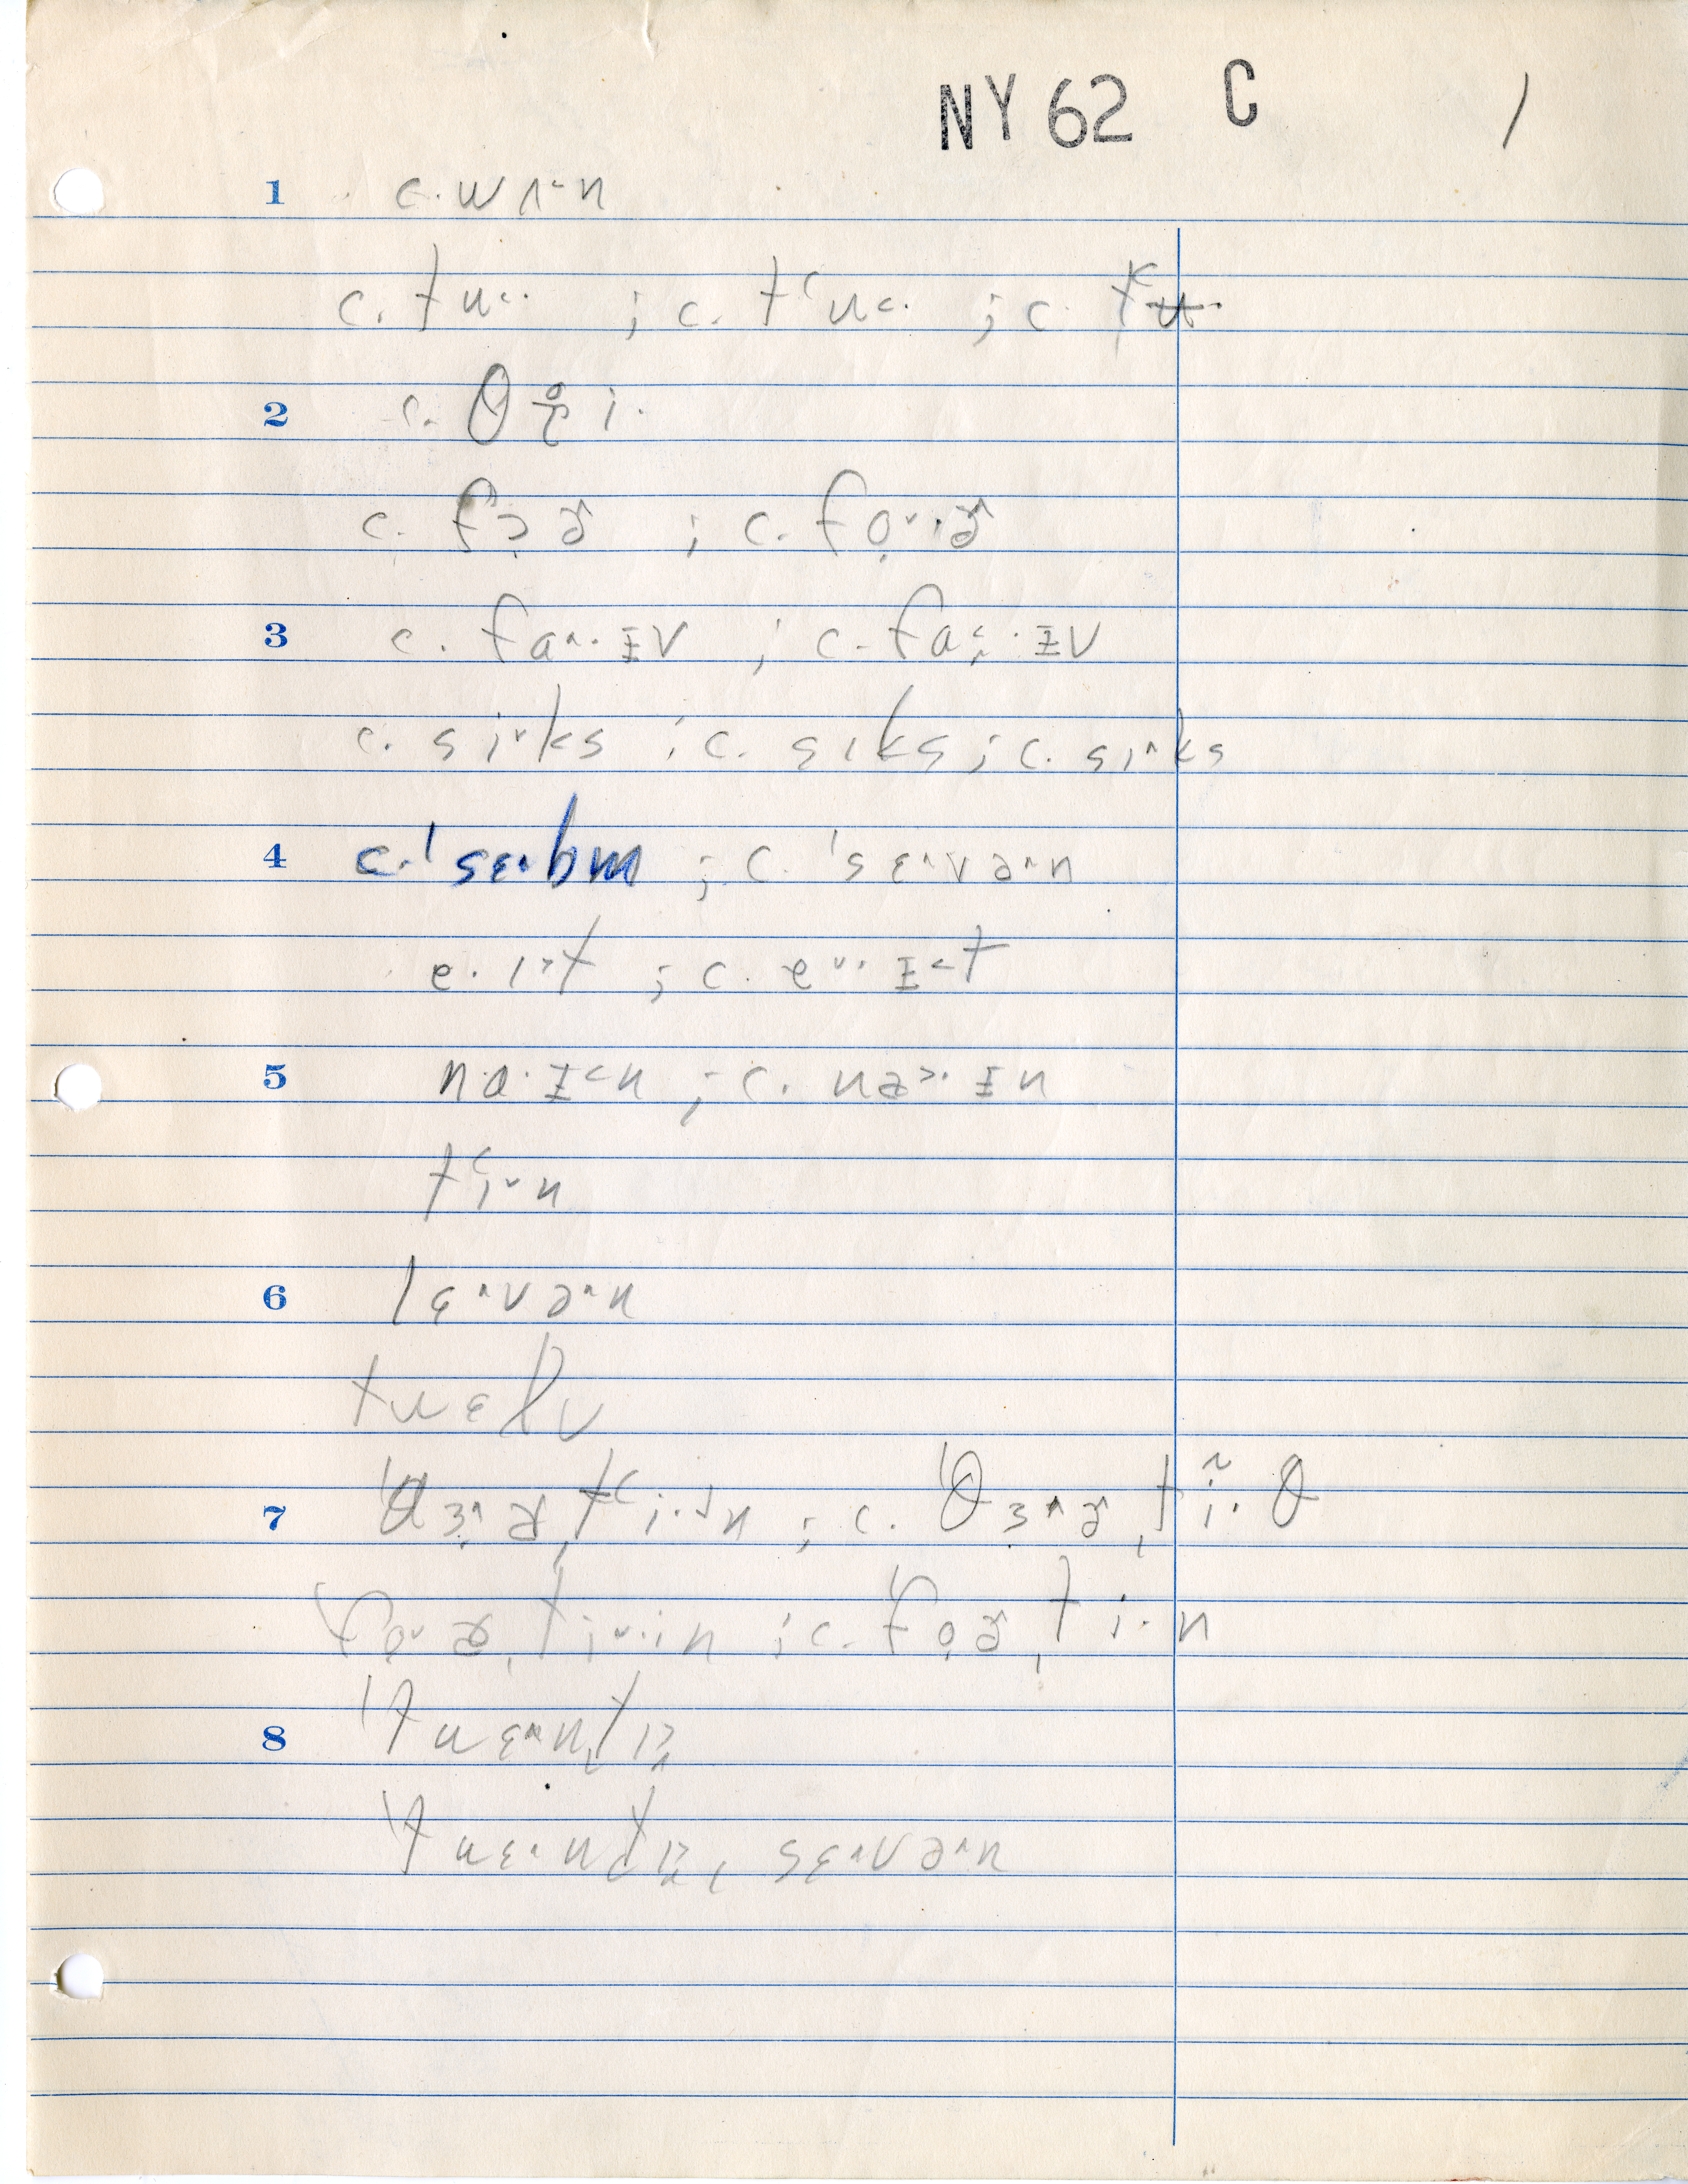 NY 62 C 1
1 c. wʌ˂n
c. tu˂· ; c. tʻu˂· ; c.
2 c. θɹ̥i·
c. fɔ̣ɚ ; c. fo̞˅·ɚ
3 c. fa˄·ɪv ; c. fa·ɪv
c. si˅ks ; c. sɪks ; c. sɪ˄ks
4 c. ˈsɛ·bm ; c. ˈsɛ˄və˄n
e·ɪ˃t ; c. e˅·ɪ˂t
5 na·ɪ˂n ; c. na˃·ɪn
tʻi˅n
6 lɛ˄və˄n
twɛlv
7 ˈθɜ˄ɚˌtʻi·˅n ; c. ˈθɜ˄ɚˌtĩ·θ
ˈfo˅ɚˌti˅·in ; c. ˈfo̞ɚˌti·n
8 ˈtwɛ˄nˌtɪ
ˈtwɛ·nˌtɪ, sɛ˄və˄n